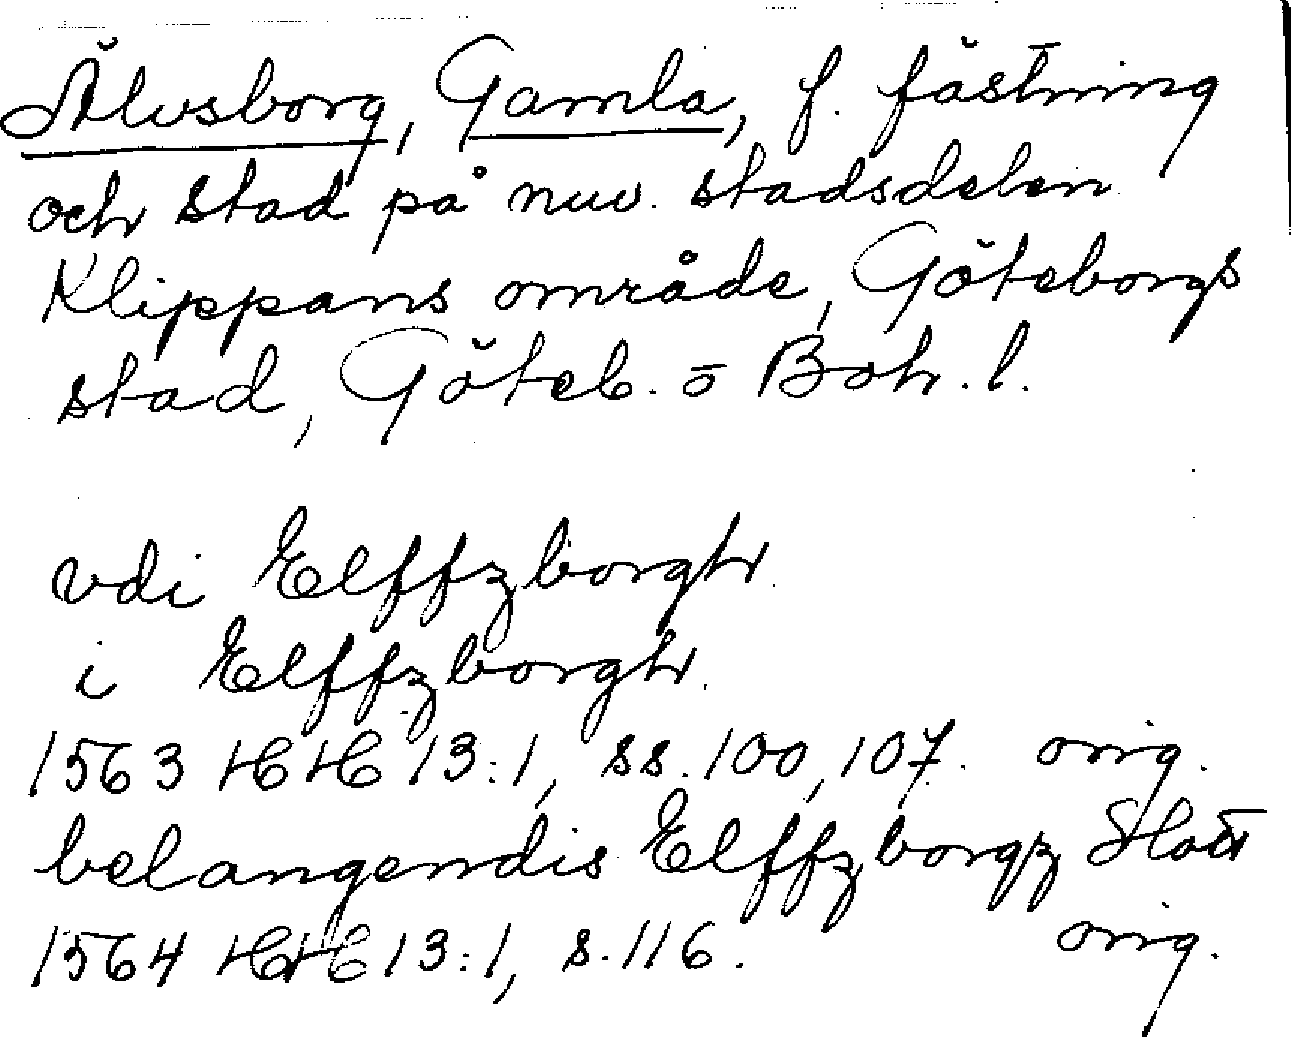 Älvsborg, Gamla, f. fästning
och stad på nuv. stadsdelen
Klippans område, Göteborgs
stad, Göteb. o Boh. l.
vdi Elffzborgh
i Elffzborgh
1563 HH 13:1, ss. 100, 107. orig.
belangendis Elffzborgz Slott
1564 HH 13:1, s. 116. orig.